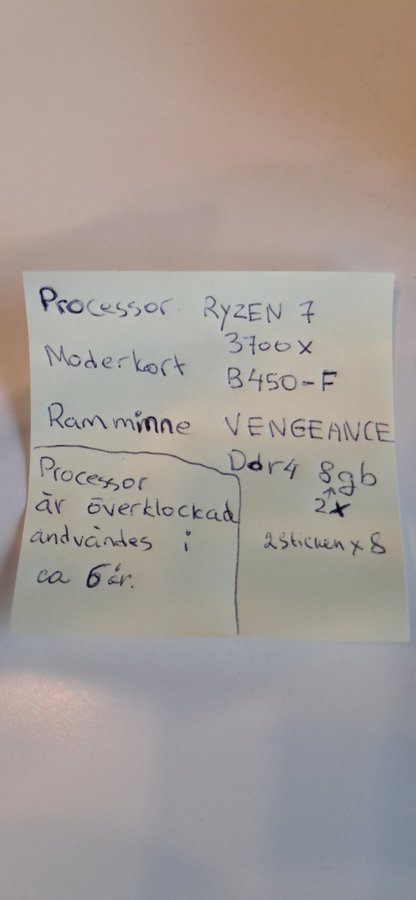 Processor RYZEN 7
3700x
Moderkort B450-F
Ramminne VENGEANCE
Ddr4 8gb
2x
2 Sticken x 8
Processor
är överklockad
andvändes i
ca 6 år.